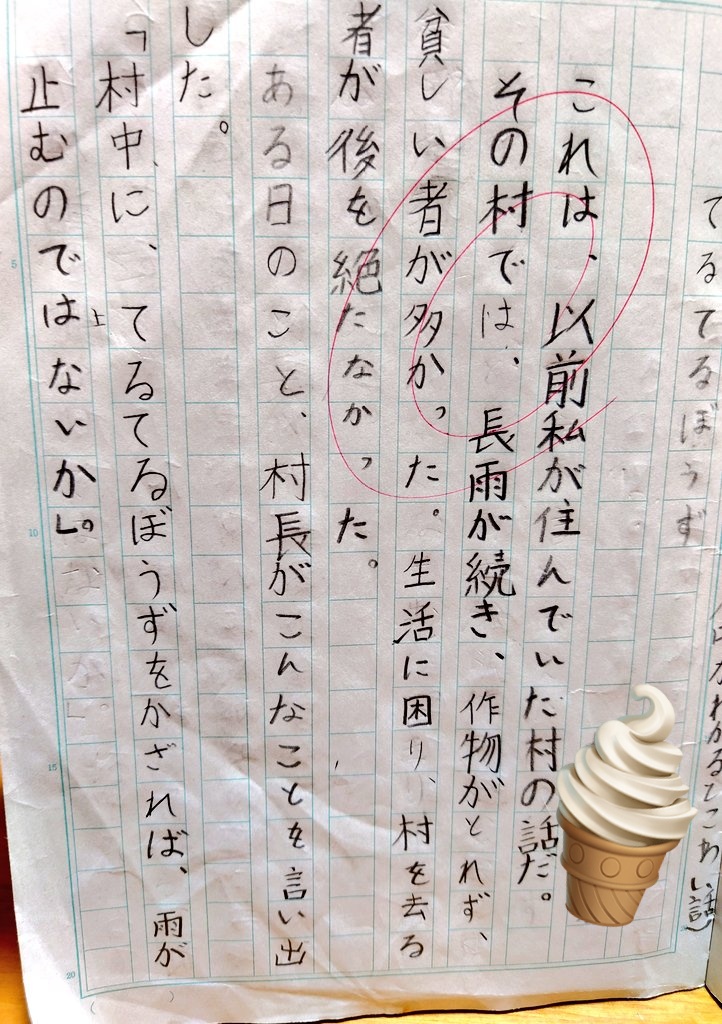 てるてるぼうず
わかるとこわい話)
これは、以前私が住んでいた村の話だ。
その村では、長雨が続き、作物がとれず、
貧しい者が多かった。生活に困り、村を去る
者が後を絶たなかった。
ある日のこと、村長がこんなことを言い出
した。
「村中に、てるてるぼうずをかざれば、雨が
止むのではないか」。